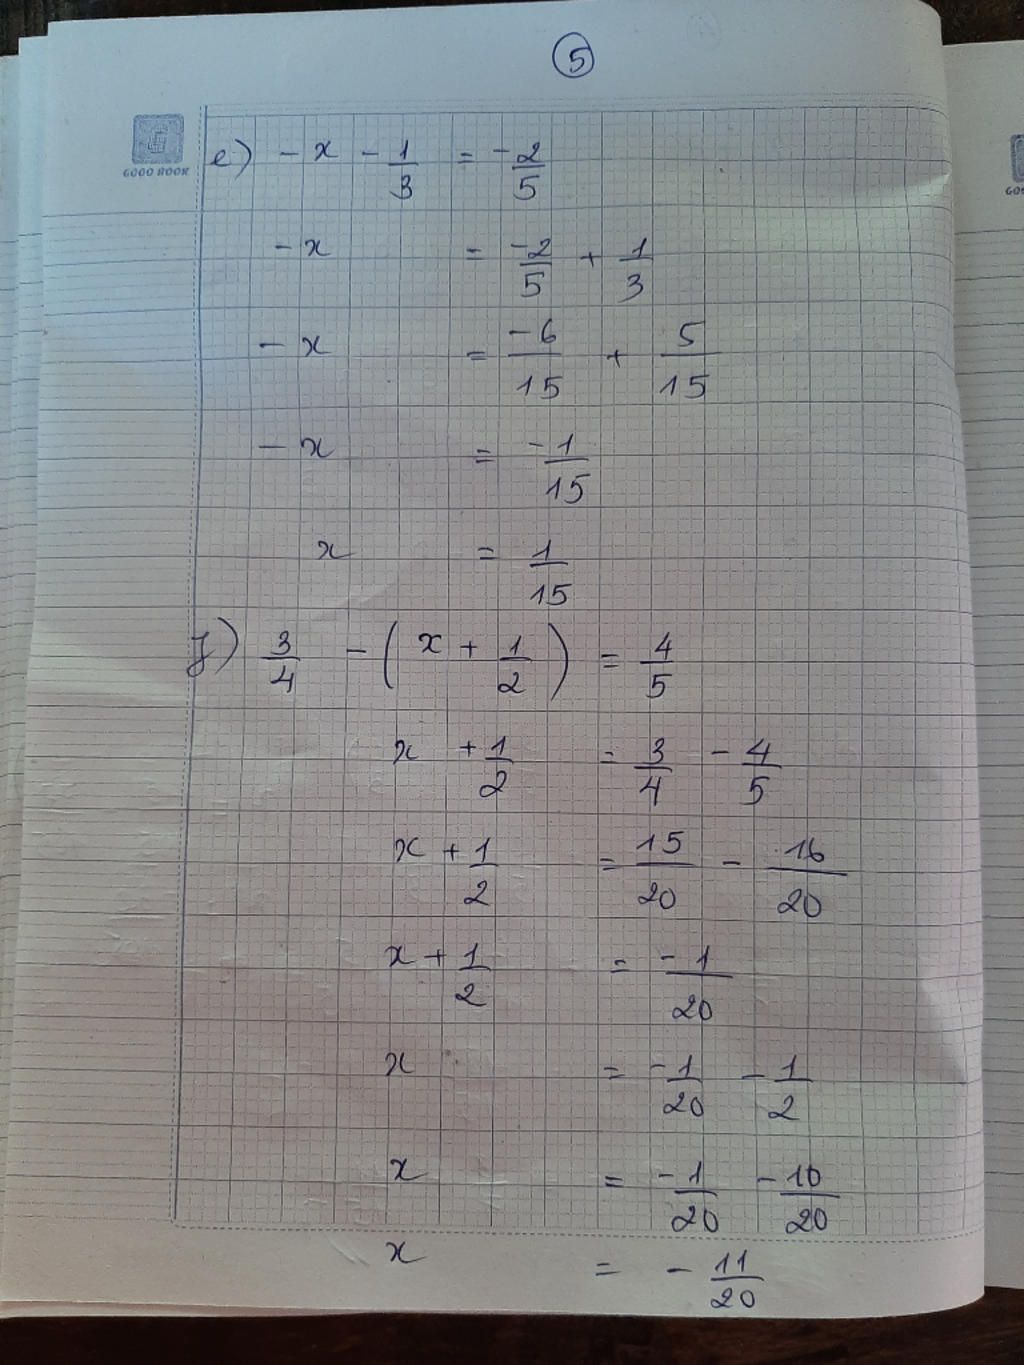 5
GOOD BOOK
e) - x - 1/3 = -2/5
- x = -2/5 + 1/3
- x = -6/15 + 5/15
- x = -1/15
x = 1/15
f) 3/4 - ( x + 1/2 ) = 4/5
x + 1/2 = 3/4 - 4/5
x + 1/2 = 15/20 - 16/20
x + 1/2 = -1/20
x = -1/20 - 1/2
x = -1/20 - 10/20
x = - 11/20